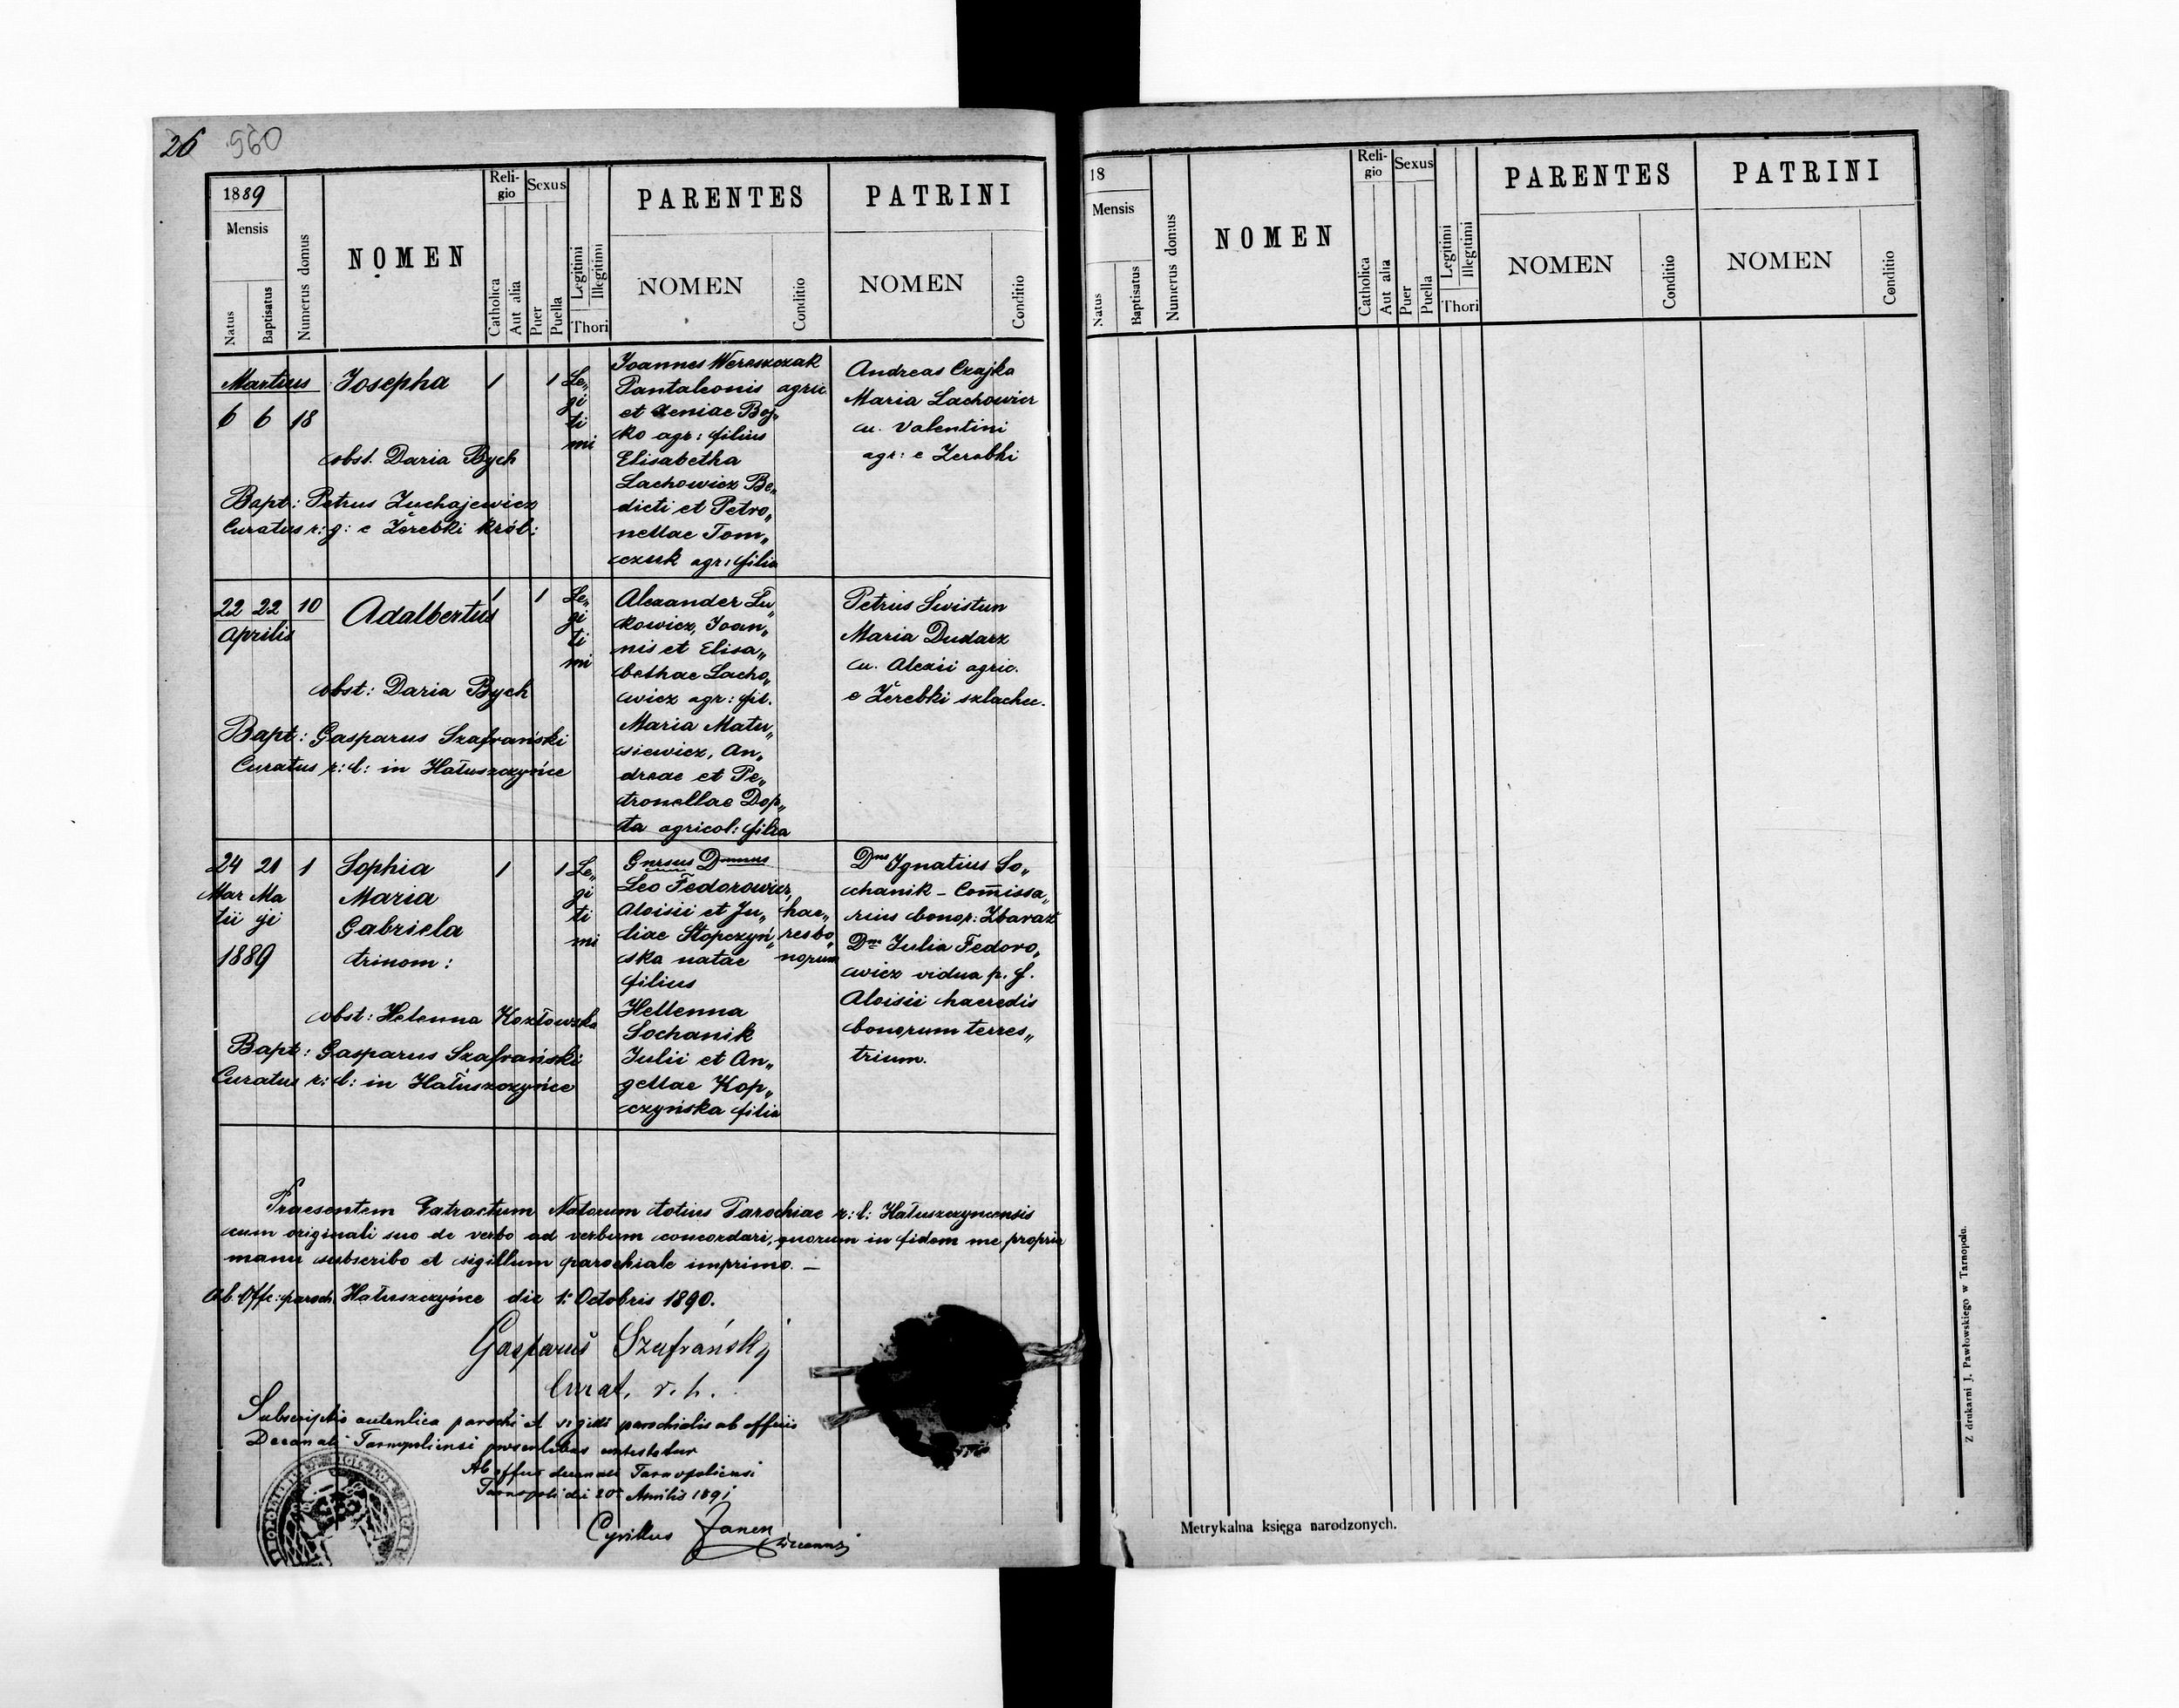 26 560
1889
Mensis
Natus
Baptisatus
Numerus domus
NOMEN
Reli-
gio
Catholica
Aut alia
Sexus
Puer
Puella
Legitimi
Illegitimi
Thori
PARENTES
NOMEN
Conditio
PATRINI
NOMEN
Conditio
Martius
6 6 18
Josepha
1 1
Le„
gi
ti
mi
obst. Daria Bych
Bapt: Petrus Zuchajewicz
Curatus r: g: e Żerebki król:
Joannes Wereszczak
Pantaleonis agric.
et Xeniae Boj„
ko agr: filius
Elisabetha
Lachowicz Be„
dicti et Petro„
nellae Tom„
czuk agr: filia
Andreas Czajka
Maria Lachowicz
u. Valentini
agr: e Zerebki
22 22 10
Aprilis
Adalbertus
1 1
Le„
gi
ti
mi
obst: Daria Bych
Bapt: Gasparus Szafrański
Curatus r: l: in Hałuszczyńce
Alexander Lu„
kowicz, Joan„
nis et Elisa„
bethae Lacho„
wicz agr: fil.
Maria Matu„
siewicz, An„
dreae et Pe„
tronellae Dop„
ta agricol: filia
Petrus Świstun
Maria Dudarz
u. Alexii agric.
e Żerebki szlachec.
24 21 1
Mar Ma
tii ji
1889
Sophia
Maria
Gabriela
trinom:
1 1
Le„
gi
ti
mi
obst: Helenna Kozłowska
Bapt: Gasparus Szafrański
Curatus r: l: in Hałuszczyńce
Gnrsus Dmnus
Leo Fedorowicz,
Aloisii et Ju„
liae Stopczyń„
ska natae
filius
haе„
res bo„
norum
Hellenna
Sochanik
Julii et An„
gellae Kop„
czyńska filia
Dns Ignatius So„
chanik – Comissa„
rius bonor: Zbaraż
Dna Julia Fedoro„
wicz vidua p. f.
Aloisii haeredis
bonorum terres„
trium.
Praesentem Extractum Natorum totius Parochiae r: l: Hałuszczyncensis
cum originali suo de verbo ad verbum concordari, quorum in fidem me propria
manu subscribo et sigillum parochiale imprimo. –
Ab. Offc: paroch. Hałuszczyńce die 1: Octobris 1890.
Gasparus Szafrański
Curat. r. l.
Subscriptio autentica parochi et sigilli parochialis ab officio
Decanali Tarnopoliensi praesentibus contestatur
Ab officio decanali Tarnopoliensi
Tarnopoli die 20 Aprilis 1891
Cyrillus
18
Mensis
Natus
Baptisatus
Numerus domus
NOMEN
Reli-
gio
Catholica
Aut alia
Sexus
Puer
Puella
Legitimi
Illegitimi
Thori
PARENTES
NOMEN
Conditio
PATRINI
NOMEN
Conditio
Metrykalna księga narodzonych.
Z drukarni J. Pawłowskiego w Tarnopolu.